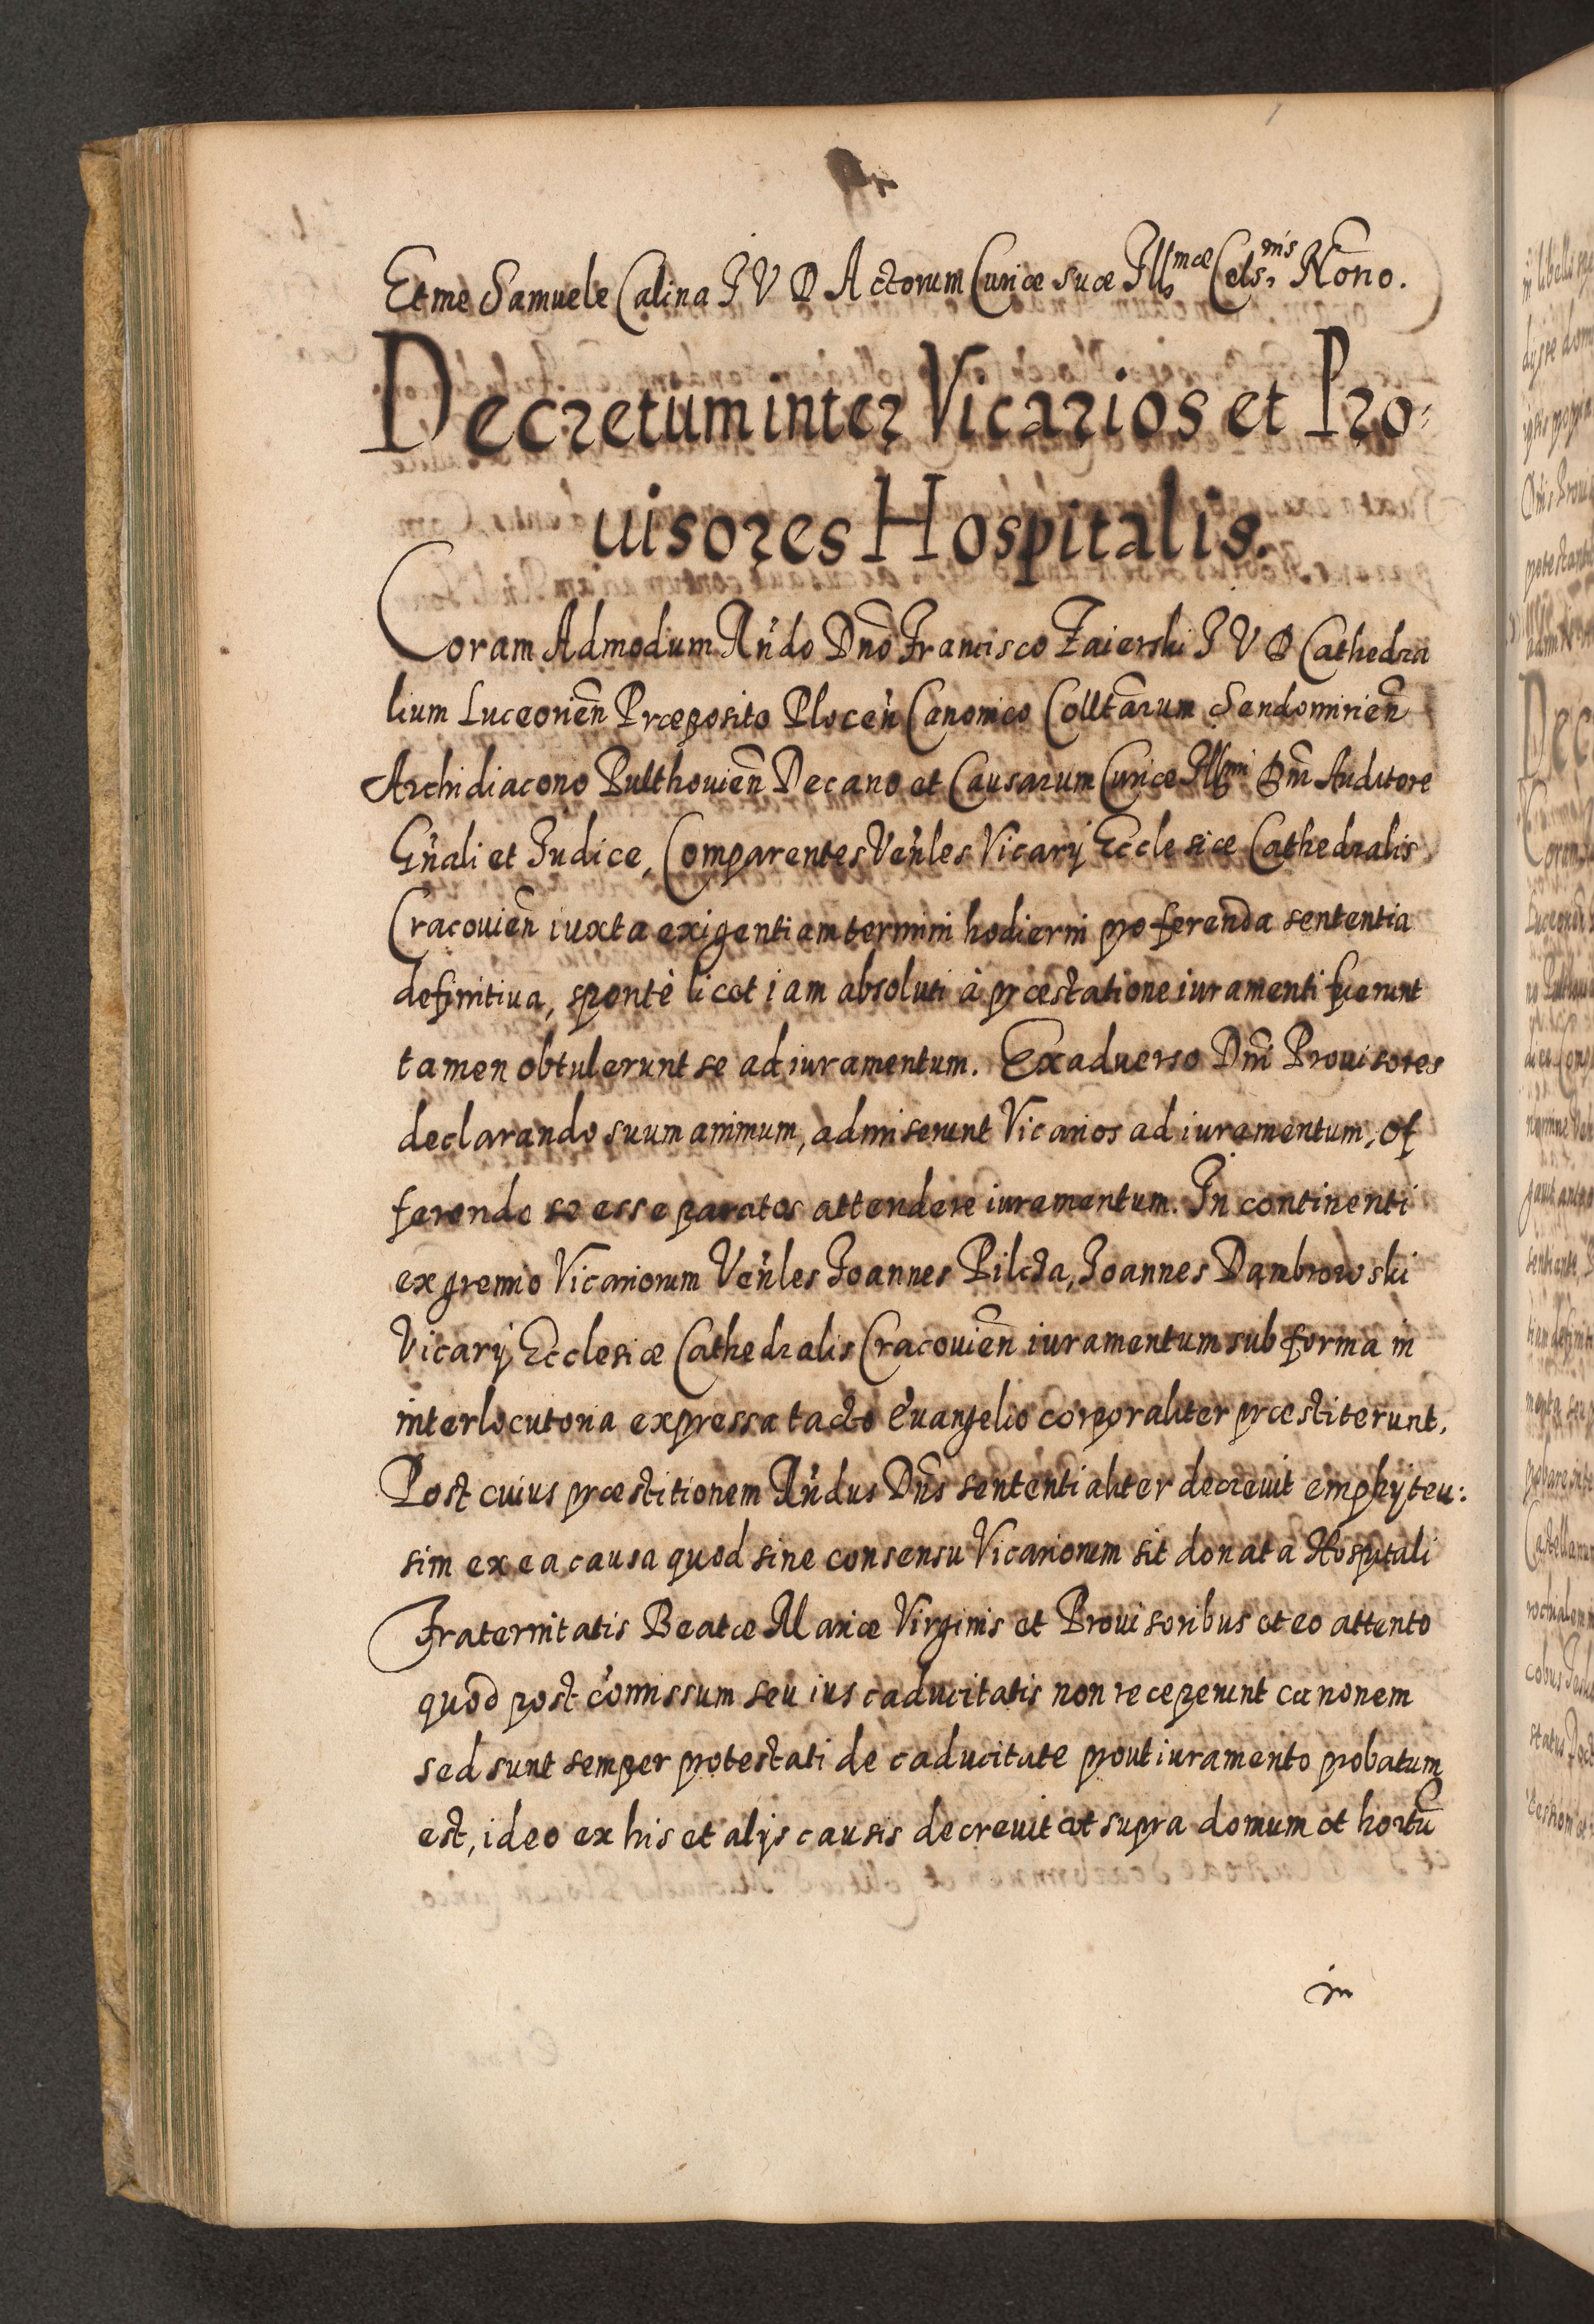 Et me Samuele Calina I V D Actorum Curiæ suæ Illmæ Cels.nis Nõrio.
Decretum inter Vicarios et Pro:
uisores Hospitalis.
Coram Admodum Rńdo Dnõ Francisco Zaierski I V D Cathedra
lium Luceorieñ Præposito Ploceń Canonico Colltarum Sendomirieñ
Archidiacono Pulthouieñ Decano et Causarum Curiæ Illmi Dni Auditore
Gńali et Iudice, Comparentes Veńles Vicarij Ecclesiæ Cathedralis
Cracouieñ iuxta exigentiam termini hodierni pro ferenda sententia
definitiua, sponte licet iam absoluti à præstatione iuramenti fuerunt
tamen obtulerunt se ad iuramentum. Ex aduerso Dni Prouisores
declarando suum animum, admiserunt Vicarios ad iuramentum, of
ferendo se esse paratos attendere iuramentum. In continenti
ex gremio Vicariorum Veńles Ioannes Pilcta, Ioannes Dambrowski
Vicarij Ecclesiæ Cathedralis Cracouieñ iuramentum sub forma in
interlocutoria expressa tacto Euangelio corporaliter præstiterunt.
Post cuius præstitionem Rńdus Dns sententialiter decreuit emphyteu:
sim ex ea causa quod sine consensu Vicariorum sit donata Hospitali
Fraternitatis Beatæ Mariæ Virginis et Prouisoribus et eo attento
quod post cómissum seu ius caducitatis non receperunt canonem
sed sunt semper protestati de caducitate prout iuramento probatum
est, ideo ex his et alijs causis decreuit ut supra domum et hortũ
in